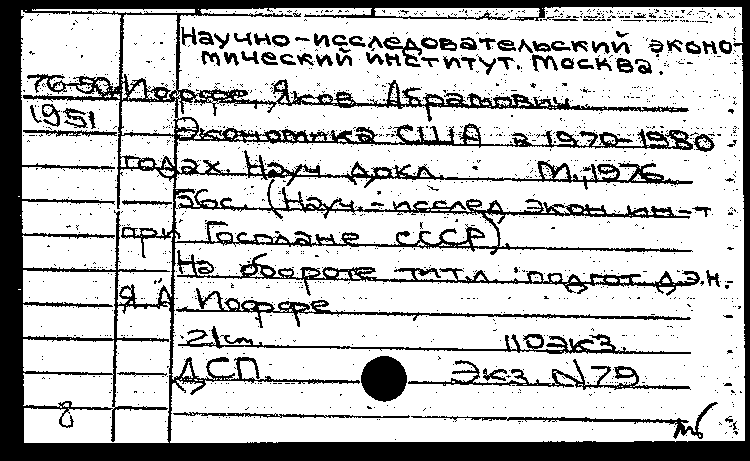 Научно-исследовательский эконо-
мический институт. Москва.
76-50 Иоффе, Яков Абрамович
1951
Экономика США в 1970-1980
годах. Науч. докл. М., 1976.
56с. (Науч.-исслед экон ин-т
при Госплане СССР).
На обороте тит.л : подгот д.э.н.
Я А Иоффе
21 см. 110 экз.
ДСП. Экз. N 79
8